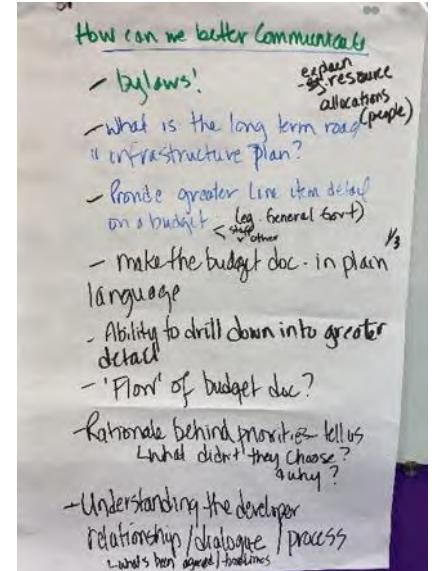 How can we better Communicate
- bylaws!
expain
- resource
allocations
(people)
- What is the long term road
" infrastructure plan?
- Provide greater line item detail
on a budget (eg. General Govt)
< staff
other
1/3
- make the budget doc. in plain
language
- Ability to drill down into greater
detail
- 'Flow' of budget doc?
- Rationale behind priorities - tell us
what didn't they choose?
& why?
- Understanding the developer
relationship / dialogue / process
what's been agreed / timelines